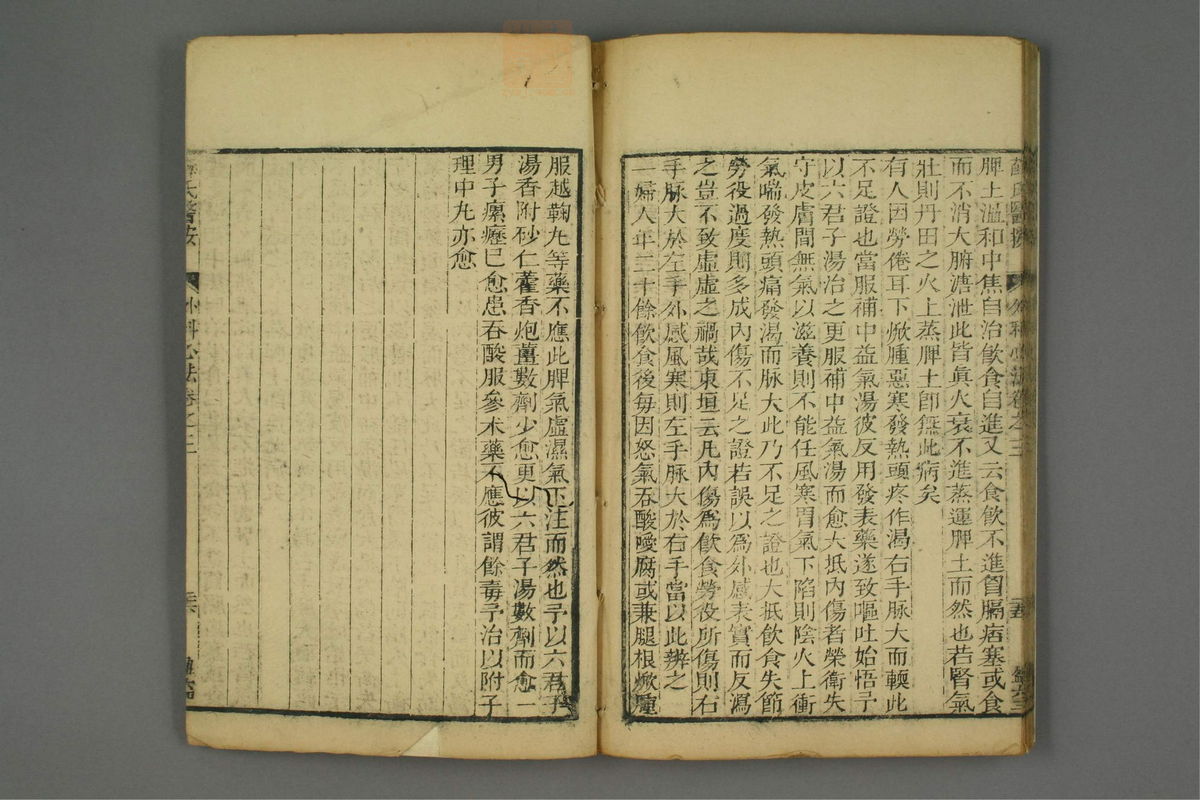 薛氏醫按 外科心法卷之三
脾土溫和中焦自治飲食自進又云食飲不進胷膈痞塞或食
而不消大腑溏泄此皆眞火衰不進蒸運脾土而然也若腎氣
壯則丹田之火上蒸脾土卽無此病矣
有人因勞倦耳下焮腫惡寒發熱頭疼作渴右手脉大而輭此
不足證也當服補中益氣湯彼反用發表藥遂致嘔吐始悟予
以六君子湯治之更服補中益氣湯而愈大抵内傷者榮衛失
守皮膚間無氣以滋養則不能任風寒胃氣下陷則陰火上衝
氣喘發熱頭痛發渴而脉大此乃不足之證也大抵飲食失節
勞役過度則多成内傷不足之證若誤以爲外感表實而反瀉
之豈不致虛虛之禍哉東垣云凡内傷爲飲食勞役所傷則右
手脉大於左手外感風寒則左手脉大於右手當以此辨之
一婦人年三十餘飲食後每因怒氣吞酸噯腐或兼腿根焮腫
服越鞠丸等藥不應此脾氣虛濕氣下注而然也予以六君子
湯香附砂仁藿香炮薑數劑少愈更以六君子湯數劑而愈一
男子瘰癧已愈患吞酸服參术藥不應彼謂餘毒予治以附子
理中丸亦愈
氏醫按 外科心法卷之三